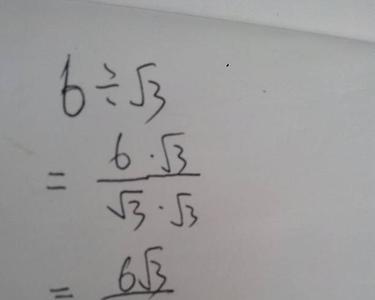 6÷√3
= 6·√3 / √3·√3
= 6√3